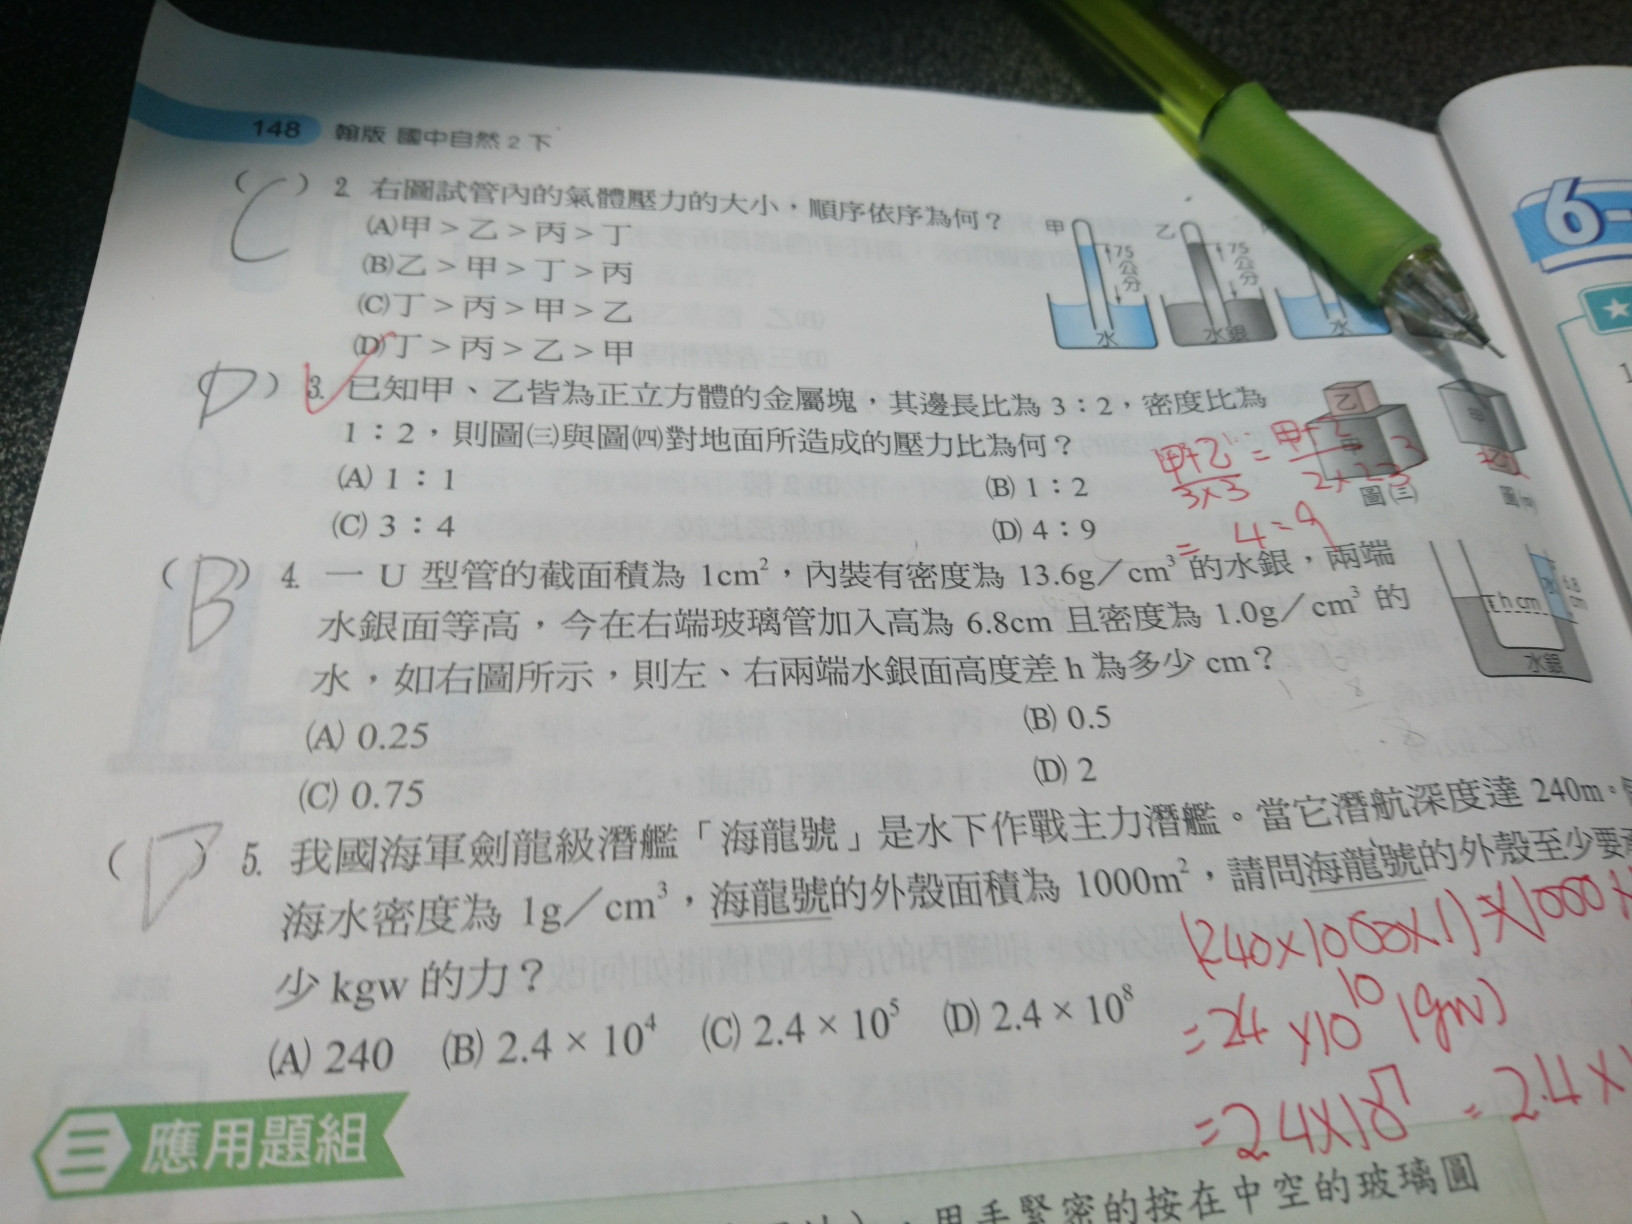 148 翰版 國中自然 2 下
( C ) 2. 右圖試管內的氣體壓力的大小，順序依序為何？
(A)甲＞乙＞丙＞丁
(B)乙＞甲＞丁＞丙
(C)丁＞丙＞甲＞乙
(D)丁＞丙＞乙＞甲
甲 75公分 水
乙 75公分 水銀
水
( D ) 3. 已知甲、乙皆為正立方體的金屬塊，其邊長比為 3：2，密度比為
1：2，則圖㈢與圖㈣對地面所造成的壓力比為何？
(A) 1：1
(B) 1：2
(C) 3：4
(D) 4：9
乙
甲
圖㈢
甲+乙/3×3 = 甲+乙/2×2
= 4=9
( B ) 4. 一 U 型管的截面積為 1cm²，內裝有密度為 13.6g／cm³ 的水銀，兩端
水銀面等高，今在右端玻璃管加入高為 6.8cm 且密度為 1.0g／cm³ 的
水，如右圖所示，則左、右兩端水銀面高度差 h 為多少 cm？
(A) 0.25
(B) 0.5
(C) 0.75
(D) 2
h cm
水
6.8 cm
水銀
( D ) 5. 我國海軍劍龍級潛艦「海龍號」是水下作戰主力潛艦。當它潛航深度達 240m。
海水密度為 1g／cm³，海龍號的外殼面積為 1000m²，請問海龍號的外殼至少要
少 kgw 的力？
(A) 240 (B) 2.4 × 10⁴ (C) 2.4 × 10⁵ (D) 2.4 × 10⁸
=24×10¹⁰(gw)
=24×10⁷ = 2.4×
三 應用題組
，用手緊密的按在中空的玻璃圓
6-